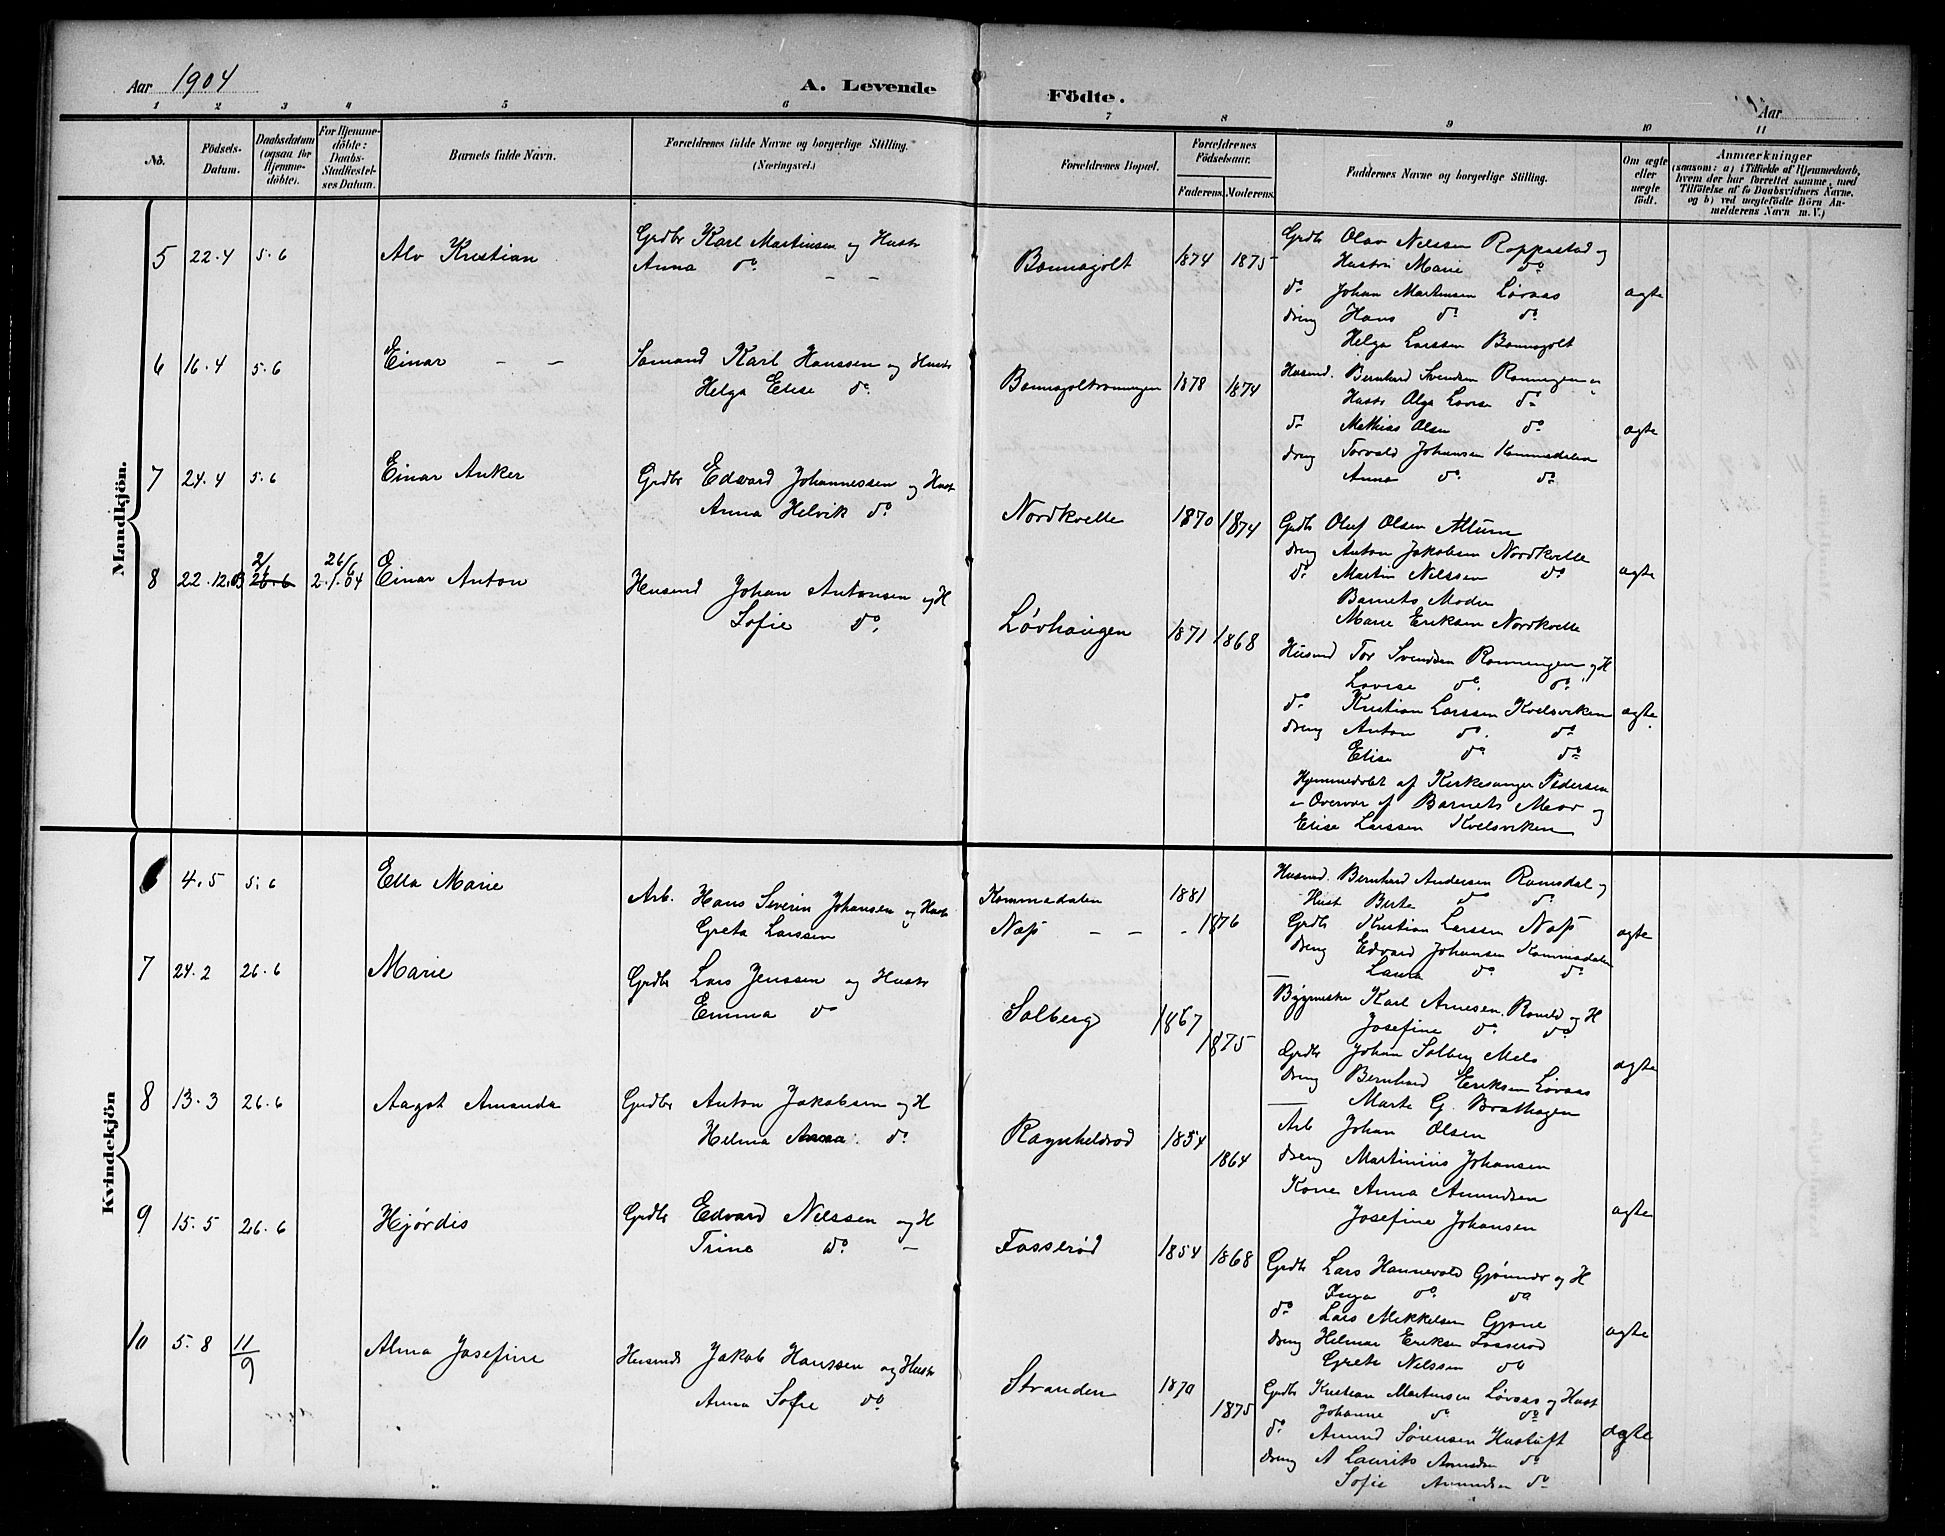 Aar 1904
A. Levende Födte.
Aar
1 2 3 4 5 6 7 8 9 10 11
No.
Födsels-Datum.
Daabsdatum (ogsaa for Hjemmedöbte).
For Hjemmedöbte: Daabs-Stadfæstelses Datum.
Barnets fulde Navn.
Forældrenes fulde Navne og borgerlige Stilling.
(Næringsvei.)
Forældrenes Bopæl.
Forældrenes Födselsaar.
Faderens. Moderens.
Faddernes Navne og borgerlige Stilling.
Om ægte eller uægte födt.
Anmærkninger
(saasom: a) i Tilfælde af Hjemmedaab,
hvem der har forrettet samme, med
Tilföielse af to Daabsvidners Navne.
og b) ved uægtefödte Börn An-
melderens Navn m. V.)
Mandkjön.
5 22.4 5.6 Alv Kristian
Grdbr Karl Martinsen og Hustr
Anna do — —
Bonnagolt 1874 1875
Grdb Olav Nilssen Roppestad og
Hustru Marie do
do Johan Martinsen Løvaas
dreng Hans do do
Helga Larssen Bonnagolt
ægte
6 16.4 5.6 Einar — —
Sømand Karl Hanssen og Hustr
Helga Elise do
1878 1874
Husmd. Bernhard Svendsen Rønningen og
Hustr Olga Lovise do
do Mathias Olsen do
dreng Torvald Johansen Kommedalen
Anna do do
ægte
7 24.4 5.6 Einar Anker
Grdbr Edvard Johannessen og Hust
Anna Helvik do
Nordkvelle 1870 1874
Grdb Oluf Olsen Allum
dreng Anton Jakobsen Nordkvelle
do Martin Nilssen do
Barnets Moder
Marie Eriksen Nordkvelle
ægte
8 22.12.03 2/1 26.6 26/6 2.1.04 Einar Anton
Husmd Johan Antonsen og H
Sofie do.
Løvhaugen 1871 1868
Husmd Tor Svendsen Rønningen og H
Lovise do. do.
do Kristian Larssen Kvelsviken
dreng Anton do. do
Elise do do
Hjemmedøbt af Kirkesanger Pedersen
i Overvær af Barnets Mor og
Elise Larssen Kvelsviken
ægte
Kvindekjön
6 4.5 5.6 Ella Marie
Arb. Hans Severin Johansen og Hustr
Greta Larssen
Kommedalen 1881
Næss — — - 1876
Husmd. Bernhard Andersen Ramsdal og
Hust Berte do do
Grdb Kristian Larssen Næss
dreng Edvard Johansen Kommedalen
Laura do do
ægte
7 24.2 26.6 Marie
Grdbr Lars Jenssen og Hustr
Emma do
Solberg 1867 1875
Bygmester Karl Arnesen og H
Josefine do do
Grdb Johan Solberg Melø
dreng Bernhard Eriksen Løvaas
Marte G. Brathagen
ægte
8 13.3 26.6 Aagot Amanda
Grdbr Anton Jakobsen og H
Helma Anna do
Ragnhildrød 1854 1864
Arb Johan Olsen
dreng Martinius Johansen
Kone Anna Amundsen
Josefine Johansen
ægte
9 15.5 26.6 Hjørdis
Grdb Edvard Nilssen og H
Trine do. —
Fosserød 1854 1868
Grdb Lars Hannevold Gjønnes og H
Inga do do
do Lars Mikkelsen Gjone
dreng Helmar Eriksen Fosserød
Grete Nilssen do
ægte
10 5.8 11/9 Alma Josefine
Husmd Jakob Hanssen og Hustr
Anna Sofie do
Stranden 1870 1875
Grdb Kristian Martinsen Løvaas og Hust
Johanne do do
do Amund Sørensen Hustuft
dreng A Laurits Amundsen do
Sofie Amundsen do
ægte